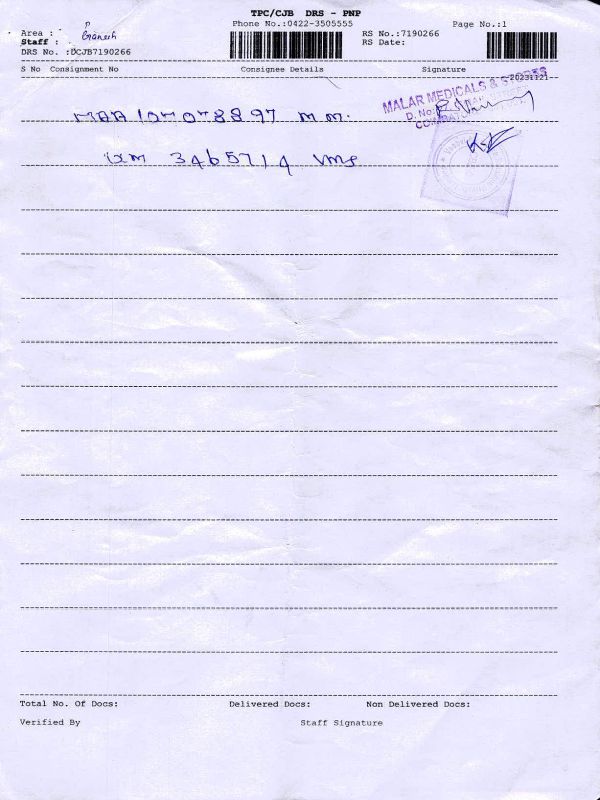 TPC/CJB DRS - PNP
Phone No.:0422-3505555
Page No.:1
Area : P
Staff : Ganesh
DRS No. :DCJB7190266
RS No.:7190266
RS Date:
S No Consignment No Consignee Details Signature
20231121
MALAR MEDICALS & STORES
D. No:
MAA107078897 M.M.
3465714
Total No. Of Docs: Delivered Docs: Non Delivered Docs:
Verified By Staff Signature